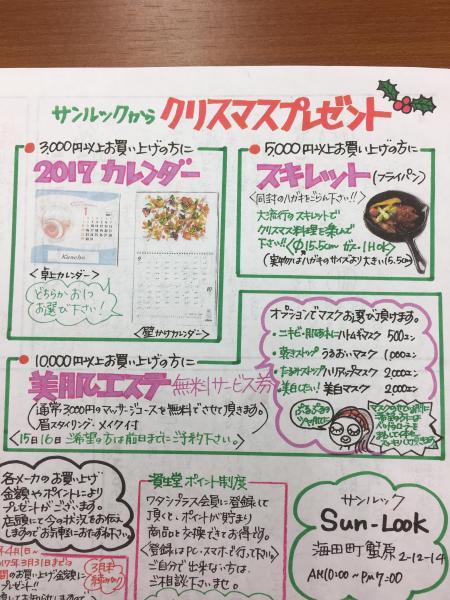 サンルックから クリスマスプレゼント
3,000円以上お買い上げの方に
2017 カレンダー
Kanebo
<卓上カレンダー>
どちらかお1つ
お選び下さい!
<壁かけカレンダー>
5,000円以上お買い上げの方に
スキレット(フライパン)
<同封のハガキをごらん下さい!!>
大流行のスキレットで
クリスマス料理を楽しんで
下さい!!<Φ15.5cm ガス・IHOK>
(実物はハガキのサイズより大きい15.5cm)
10000円以上お買い上げの方に
美肌エステ 無料サービス券
(通常3,000円のマッサージコースを無料でさせて頂きます。)
眉スタイリング・メイク付
<15日16日 ご希望の方は前日までにご予約下さい。>
オプションでマスクお選び頂けます。
・ニキビ・肌あれにハトムギマスク 500えん
・乾きストップ うるおいマスク 1,000えん
・たるみストップ ハリアップマスク 2,000えん
・美白したい! 美白マスク 2,000えん
各メーカのお買上げ
金額やポイントにより
プレゼントがございます。
店頭にて今の状況をお伝え
しますのでお気軽におたずね下さい。
年4月1日~
2017年3月31日までの
間のお買い上げ金額に
プレゼント!!
3月末
資生堂 ポイント制度
ワタシプラス会員に登録して
頂くと、ポイントが貯まり
商品と交換できてお得です。
<登録はPC・スマホで行って下さい>
ご自分で出来ない方は、
ご相談下さいませ。
サンルック
Sun-Look
海田町蟹原
2-12-14
AM10:00~PM7:00